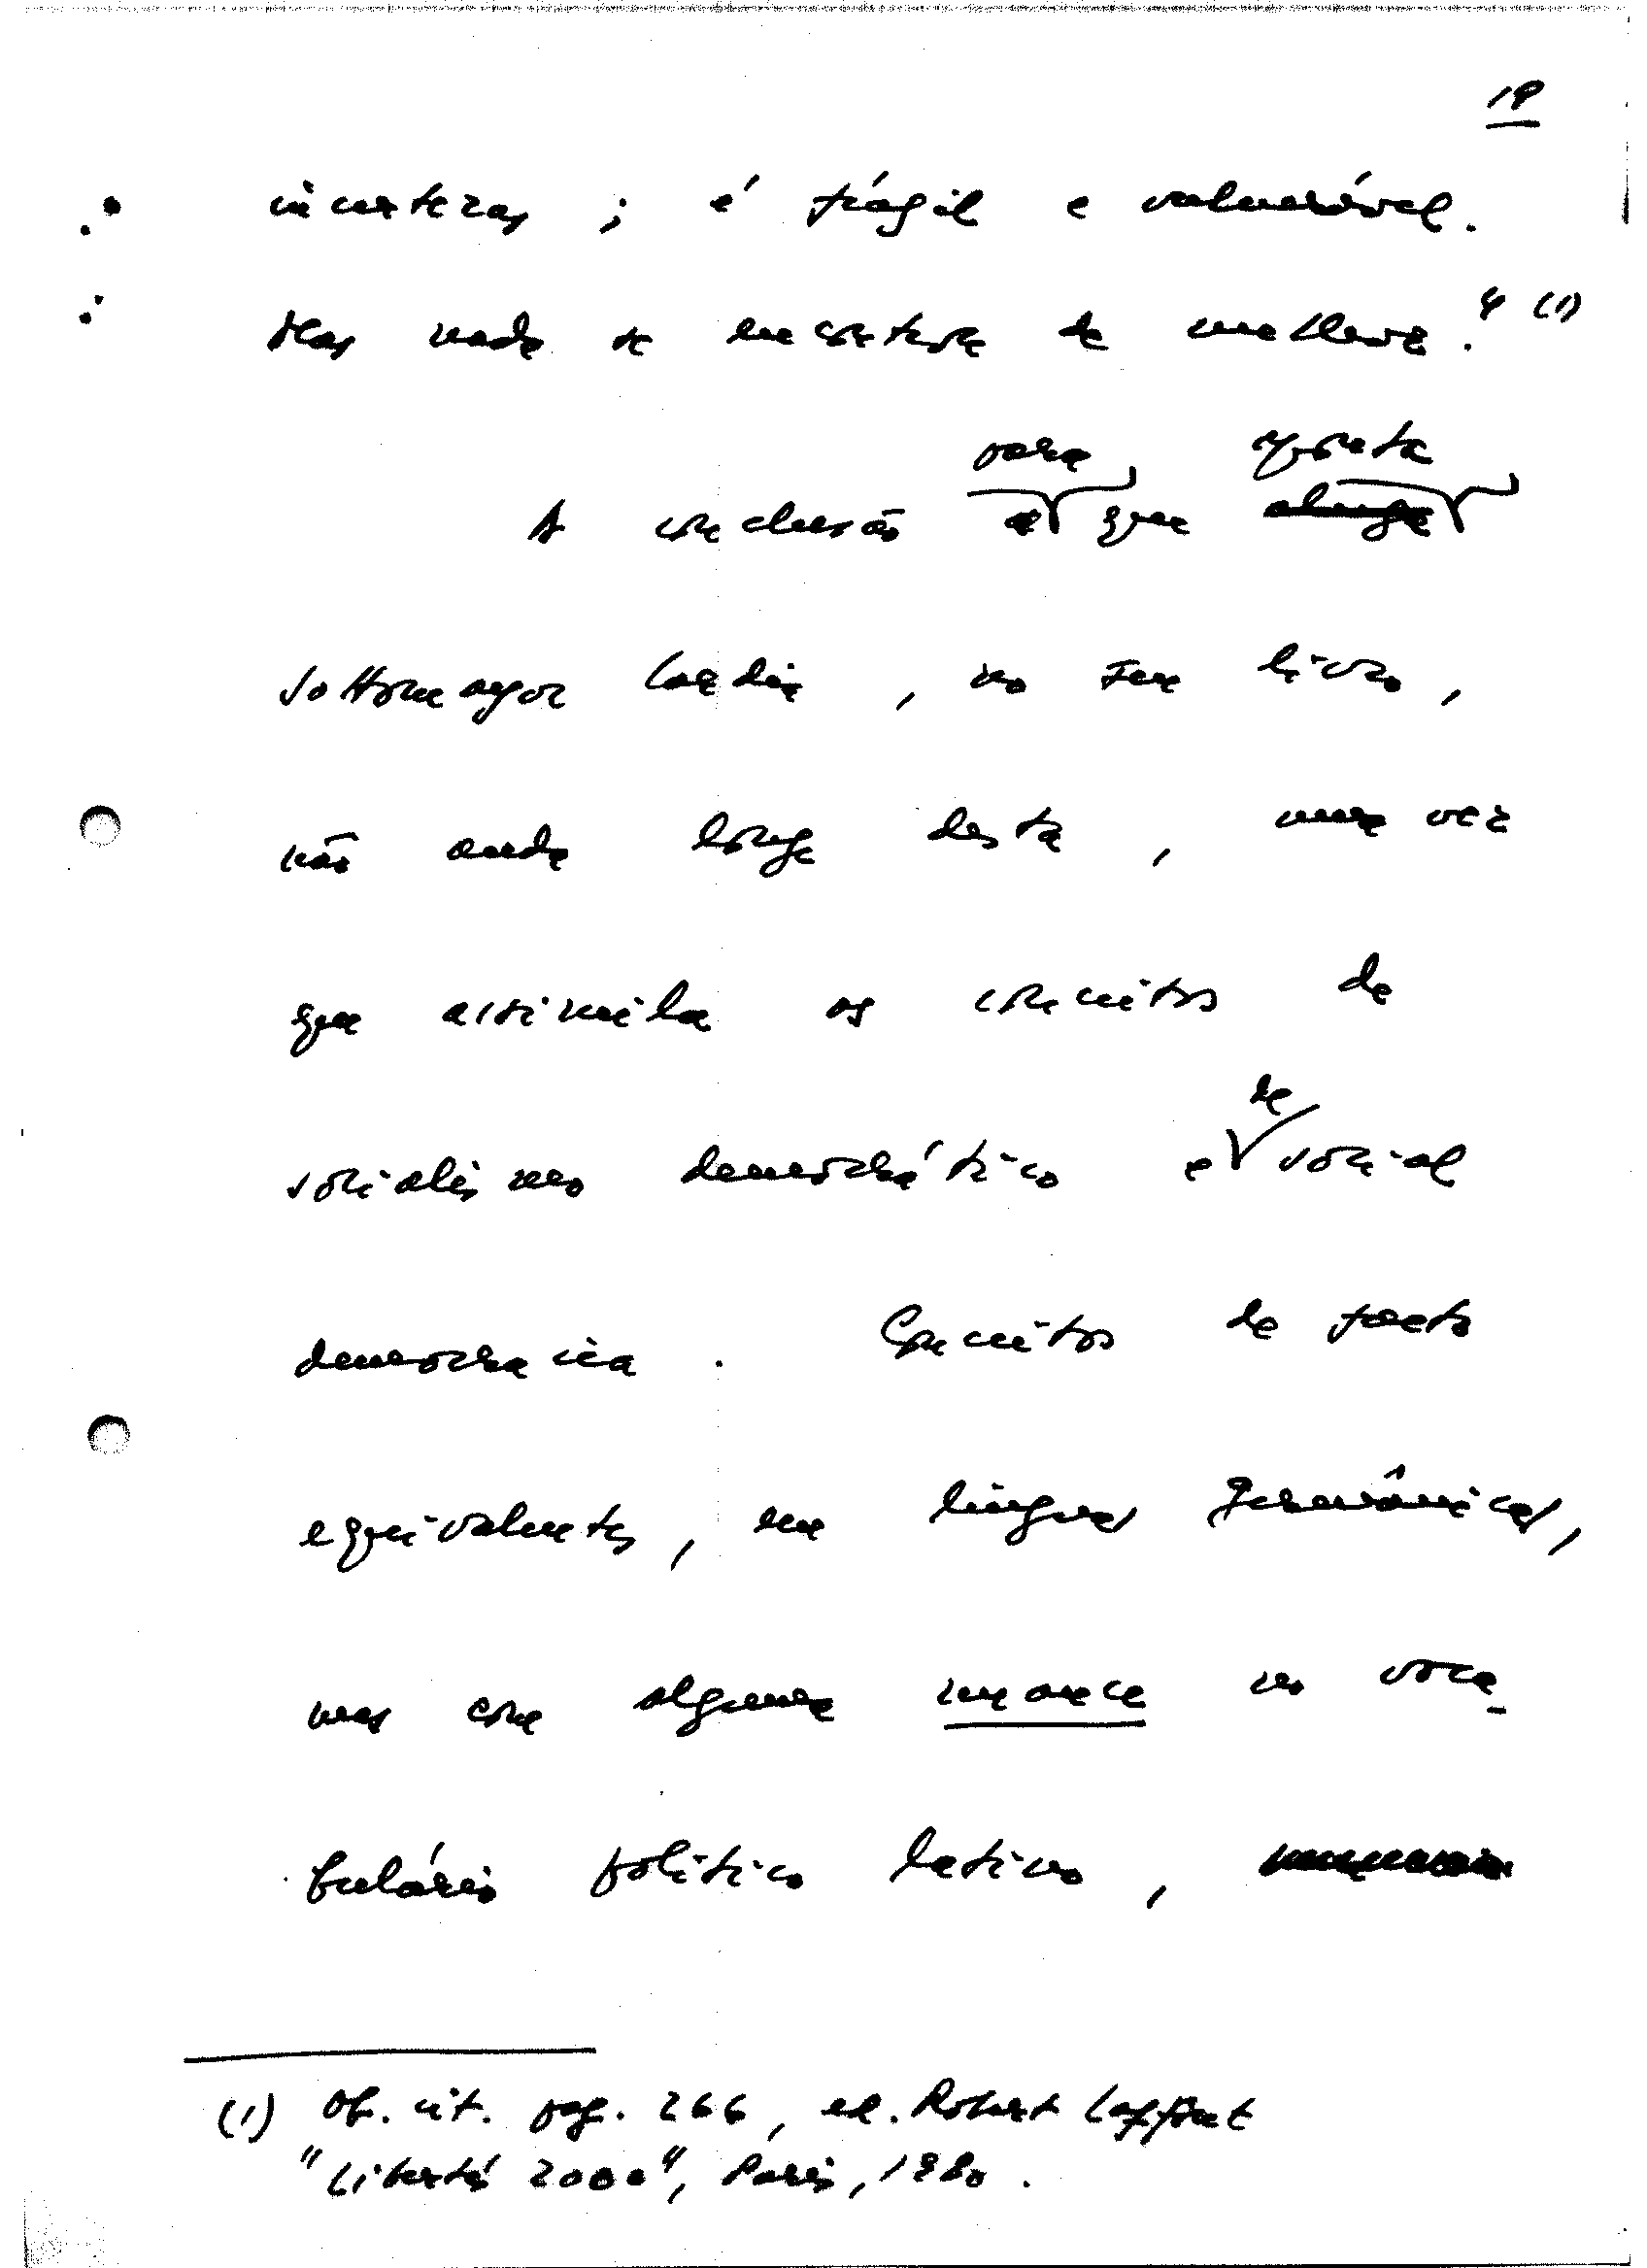 19
incertezas ; é frágil e vulnerável.
Mas nada se encontra de melhor." (1)
para aponta
A conclusão a que chega
Sottomayor Cardia, no seu livro,
não anda longe desta, uma vez
que assimila os conceitos de
de
socialismo democrático e social
democracia. Conceitos de facto
equivalentes, em línguas germânicas,
mas com alguma nuance no voca-
bulário político latino,
(1) Op. cit. pag. 266, ed. Robert Laffont
"Libertés 2000", Paris, 1980.